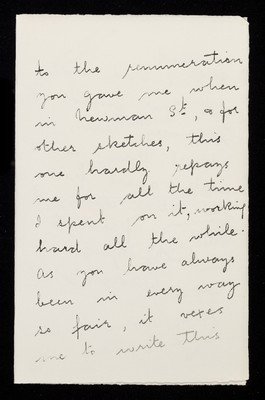 to the remuneration
you gave me when
in Newman St, & for
other sketches, this
one hardly repays
me for all the time
I spent on it, working
hard all the while.
As you have always
been in every way
so fair, it vexes
me to write this